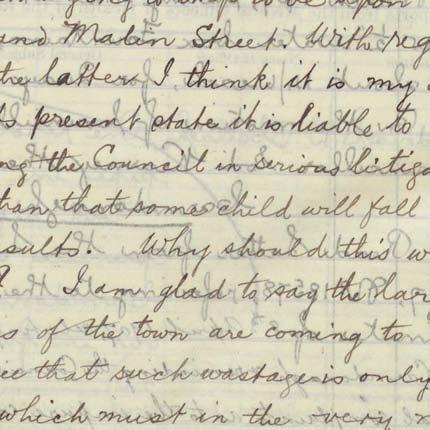 to be upon
and Malin Street. With reg
the latter I think it is my
ts present state it is liable to
ng the Council in serious litiga
than that some child will fall
sults. Why should this w
? I am glad to say the lar
s of the town are coming to
ice that such wastage is only
which must in the very n